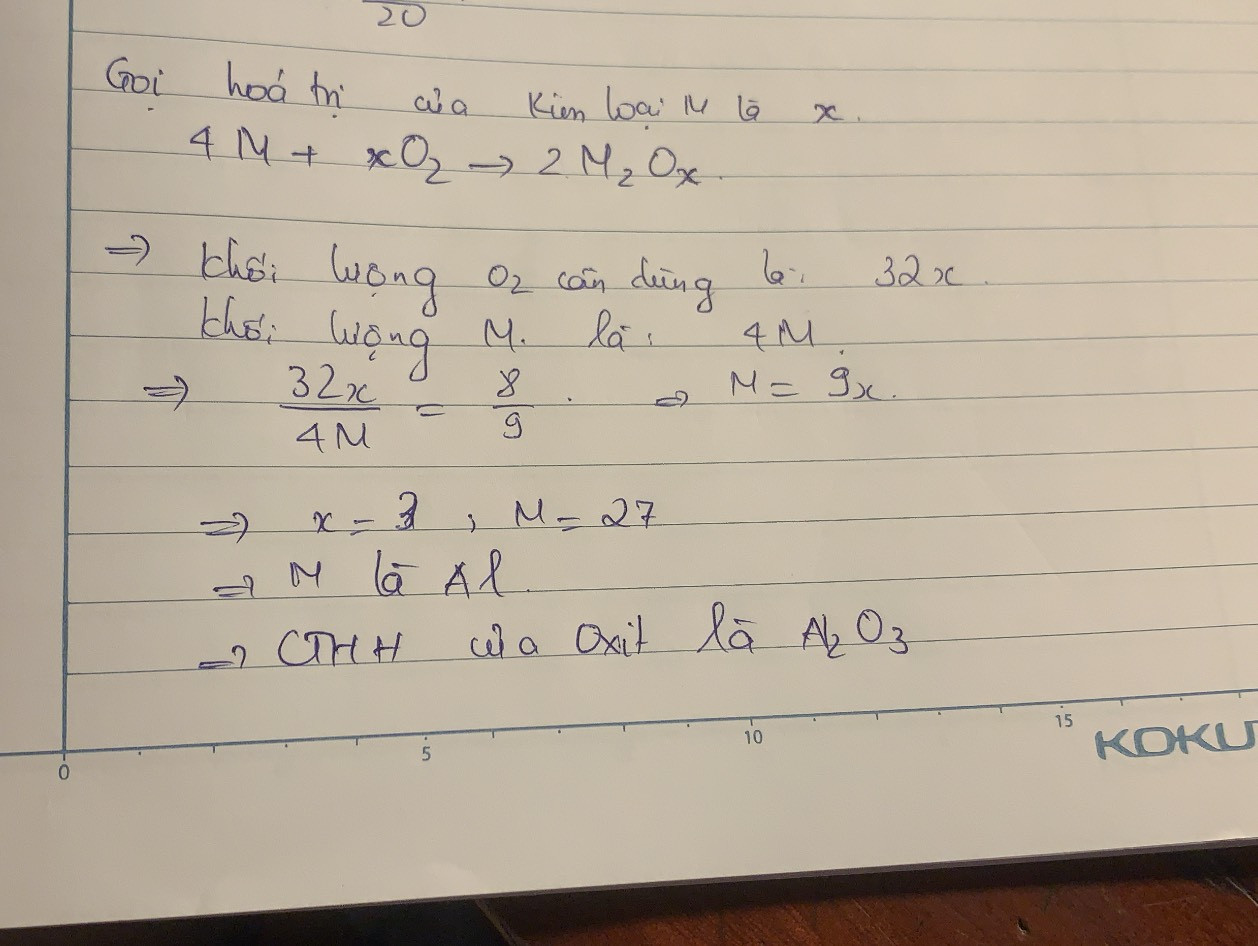 20
Gọi hoá trị của Kim loại M là x.
4M + xO₂ → 2M₂Oₓ.
=> Khối lượng O₂ cần dùng là: 32x.
Khối lượng M. là: 4M.
=> 32x/4M = 8/9. => M = 9x.
=> x = 3 ; M = 27
=> M là Al.
=> CTHH của Oxit là Al₂O₃
0 5 10 15
KOKU